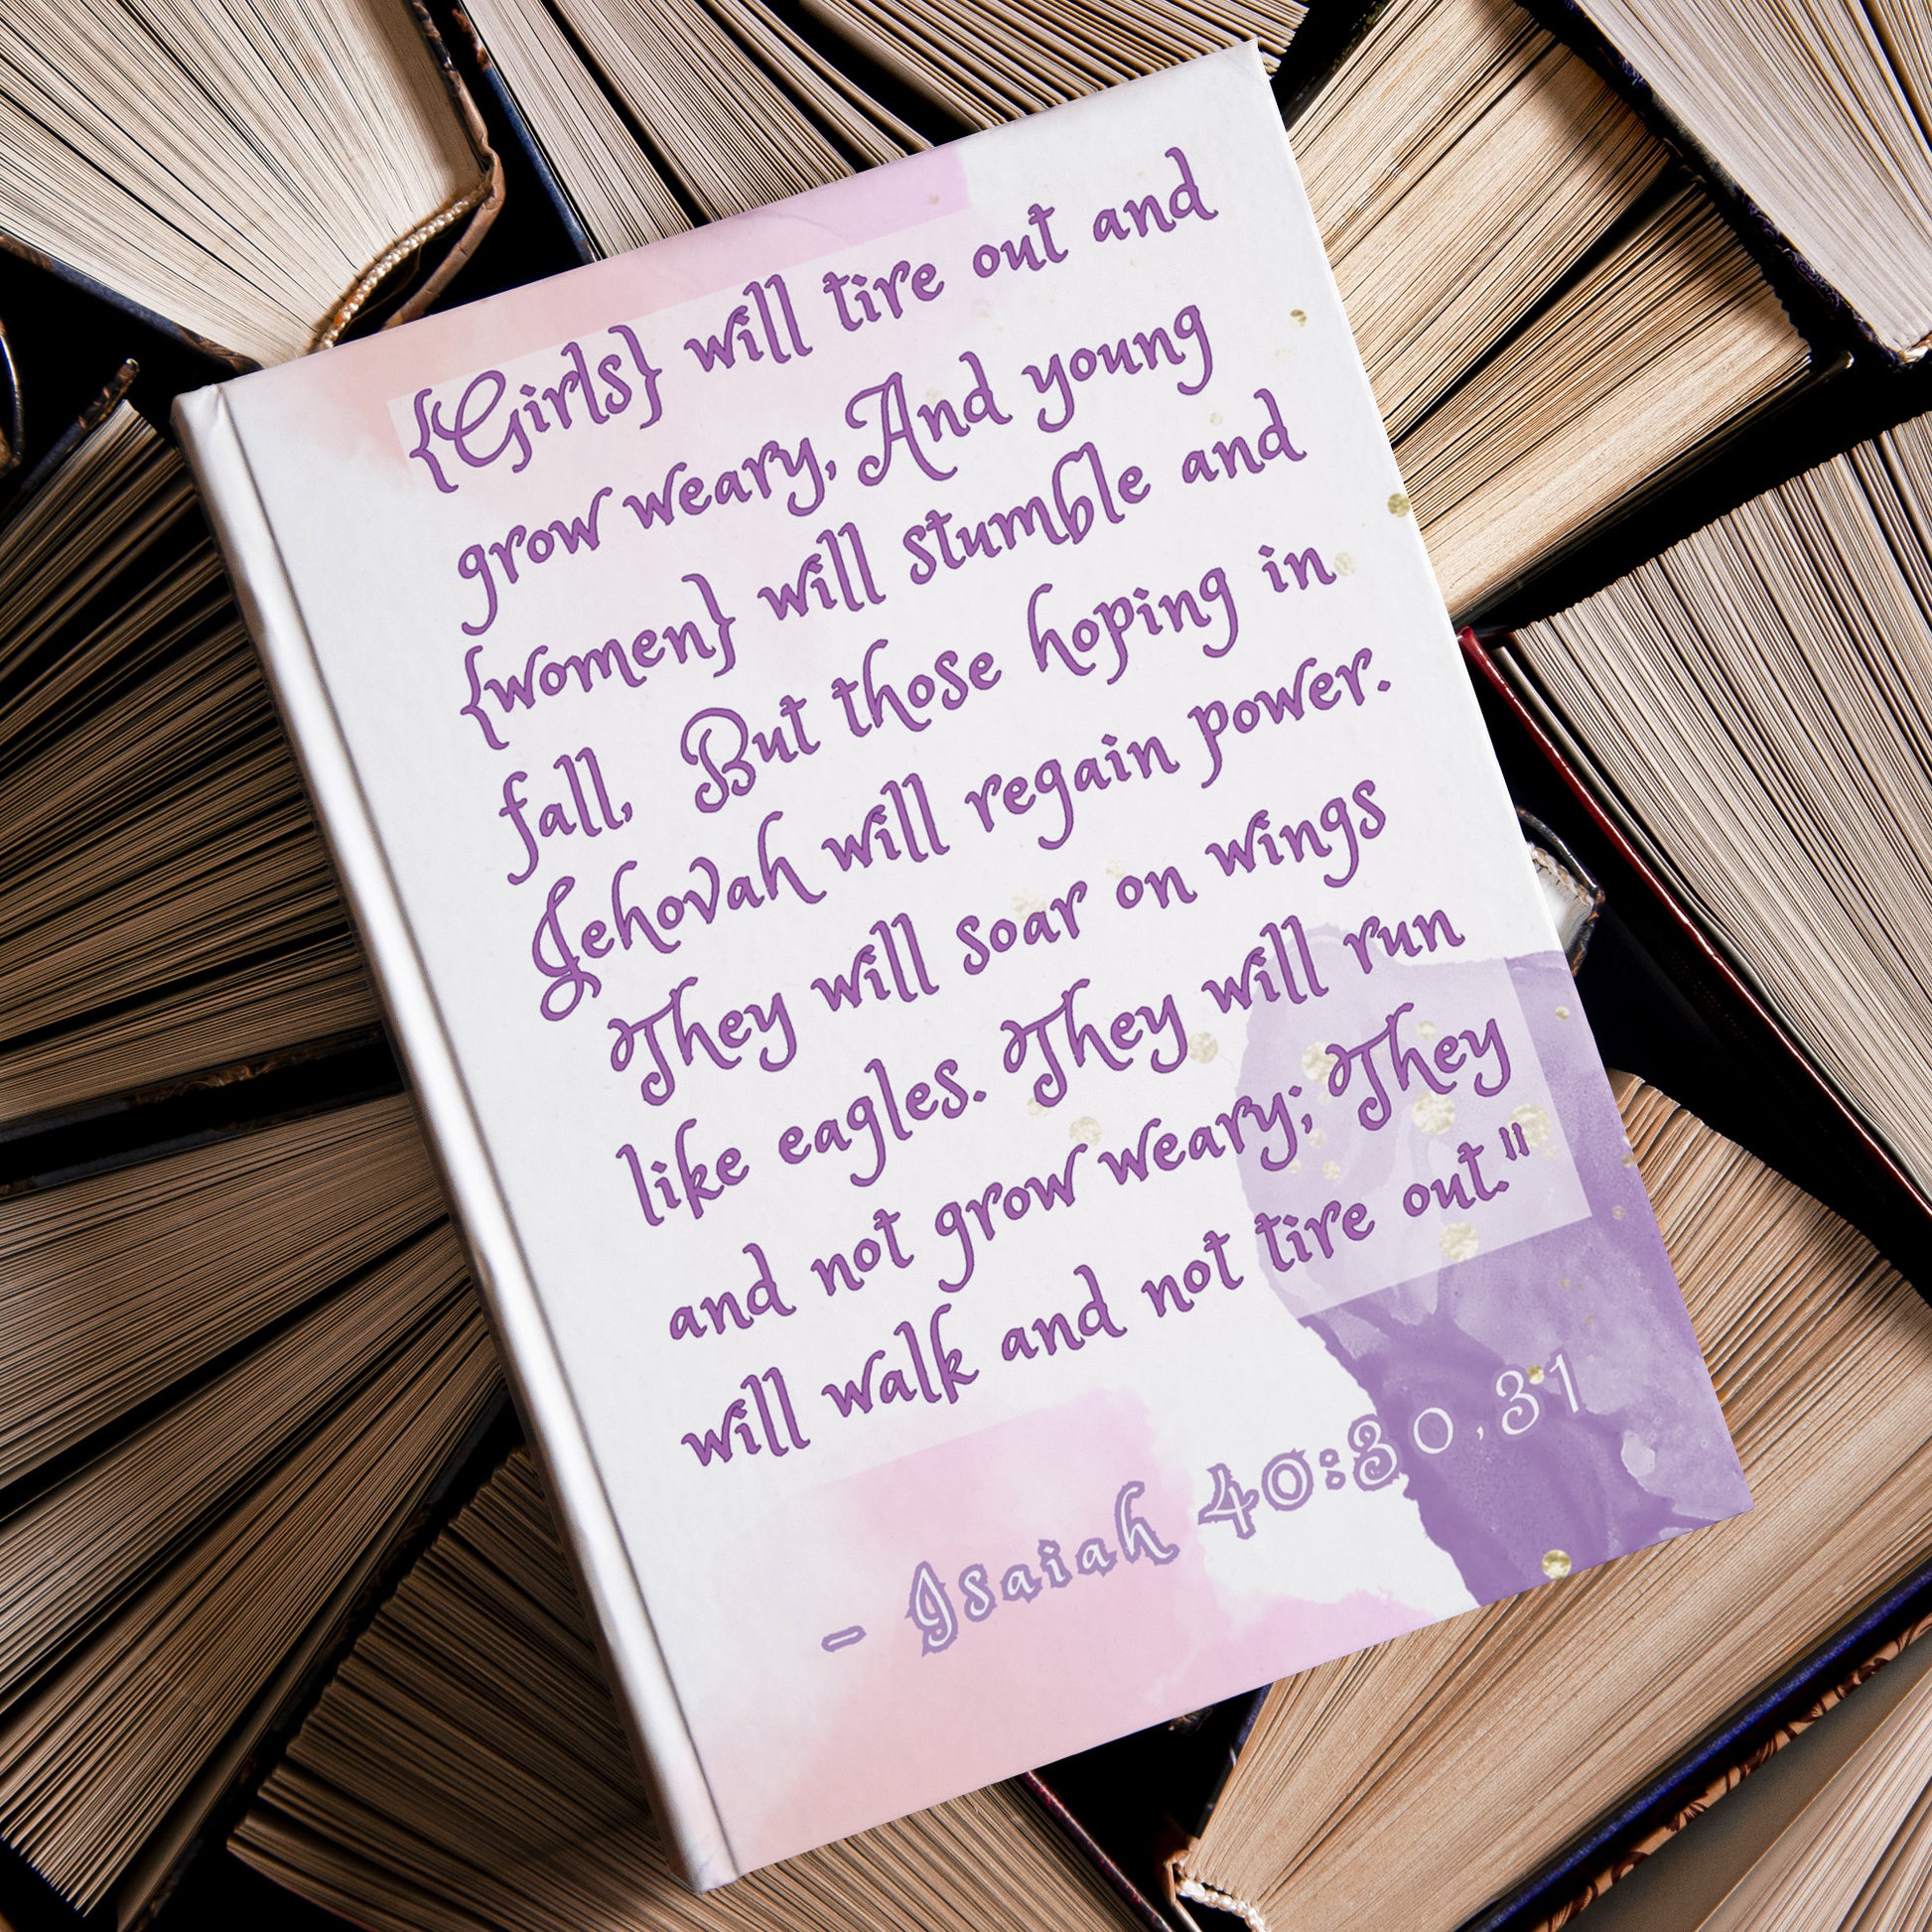 {Girls} will tire out and
grow weary, And young
{women} will stumble and
fall, But those hoping in
Jehovah will regain power.
They will soar on wings
like eagles. They will run
and not grow weary; They
will walk and not tire out."
- Isaiah 40:30,31